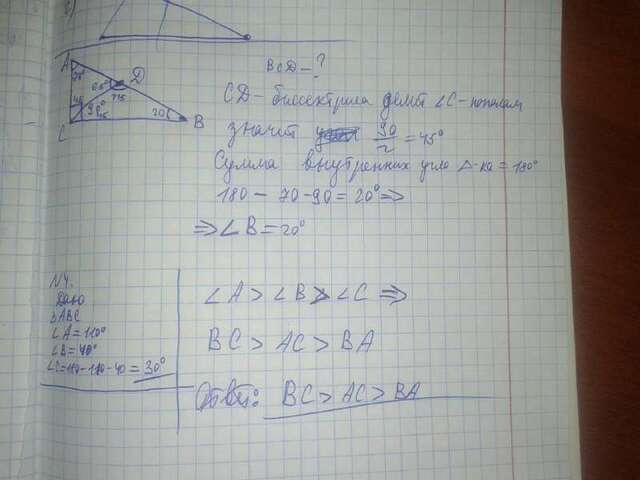 A
D
C
B
90°
20
BCD - ?
CD - биссектриса делит ∠C - пополам
значит 90/2 = 45°
Сумма внутренних угло △-ка = 180°
180 - 70 - 90 = 20° ⇒
⇒ ∠B = 20°
N4.
Дано
△ABC
∠A = 110°
∠B = 40°
∠C = 180 - 110 - 40 = 30°
∠A > ∠B > ∠C ⇒
BC > AC > BA
Ответ: BC > AC > BA